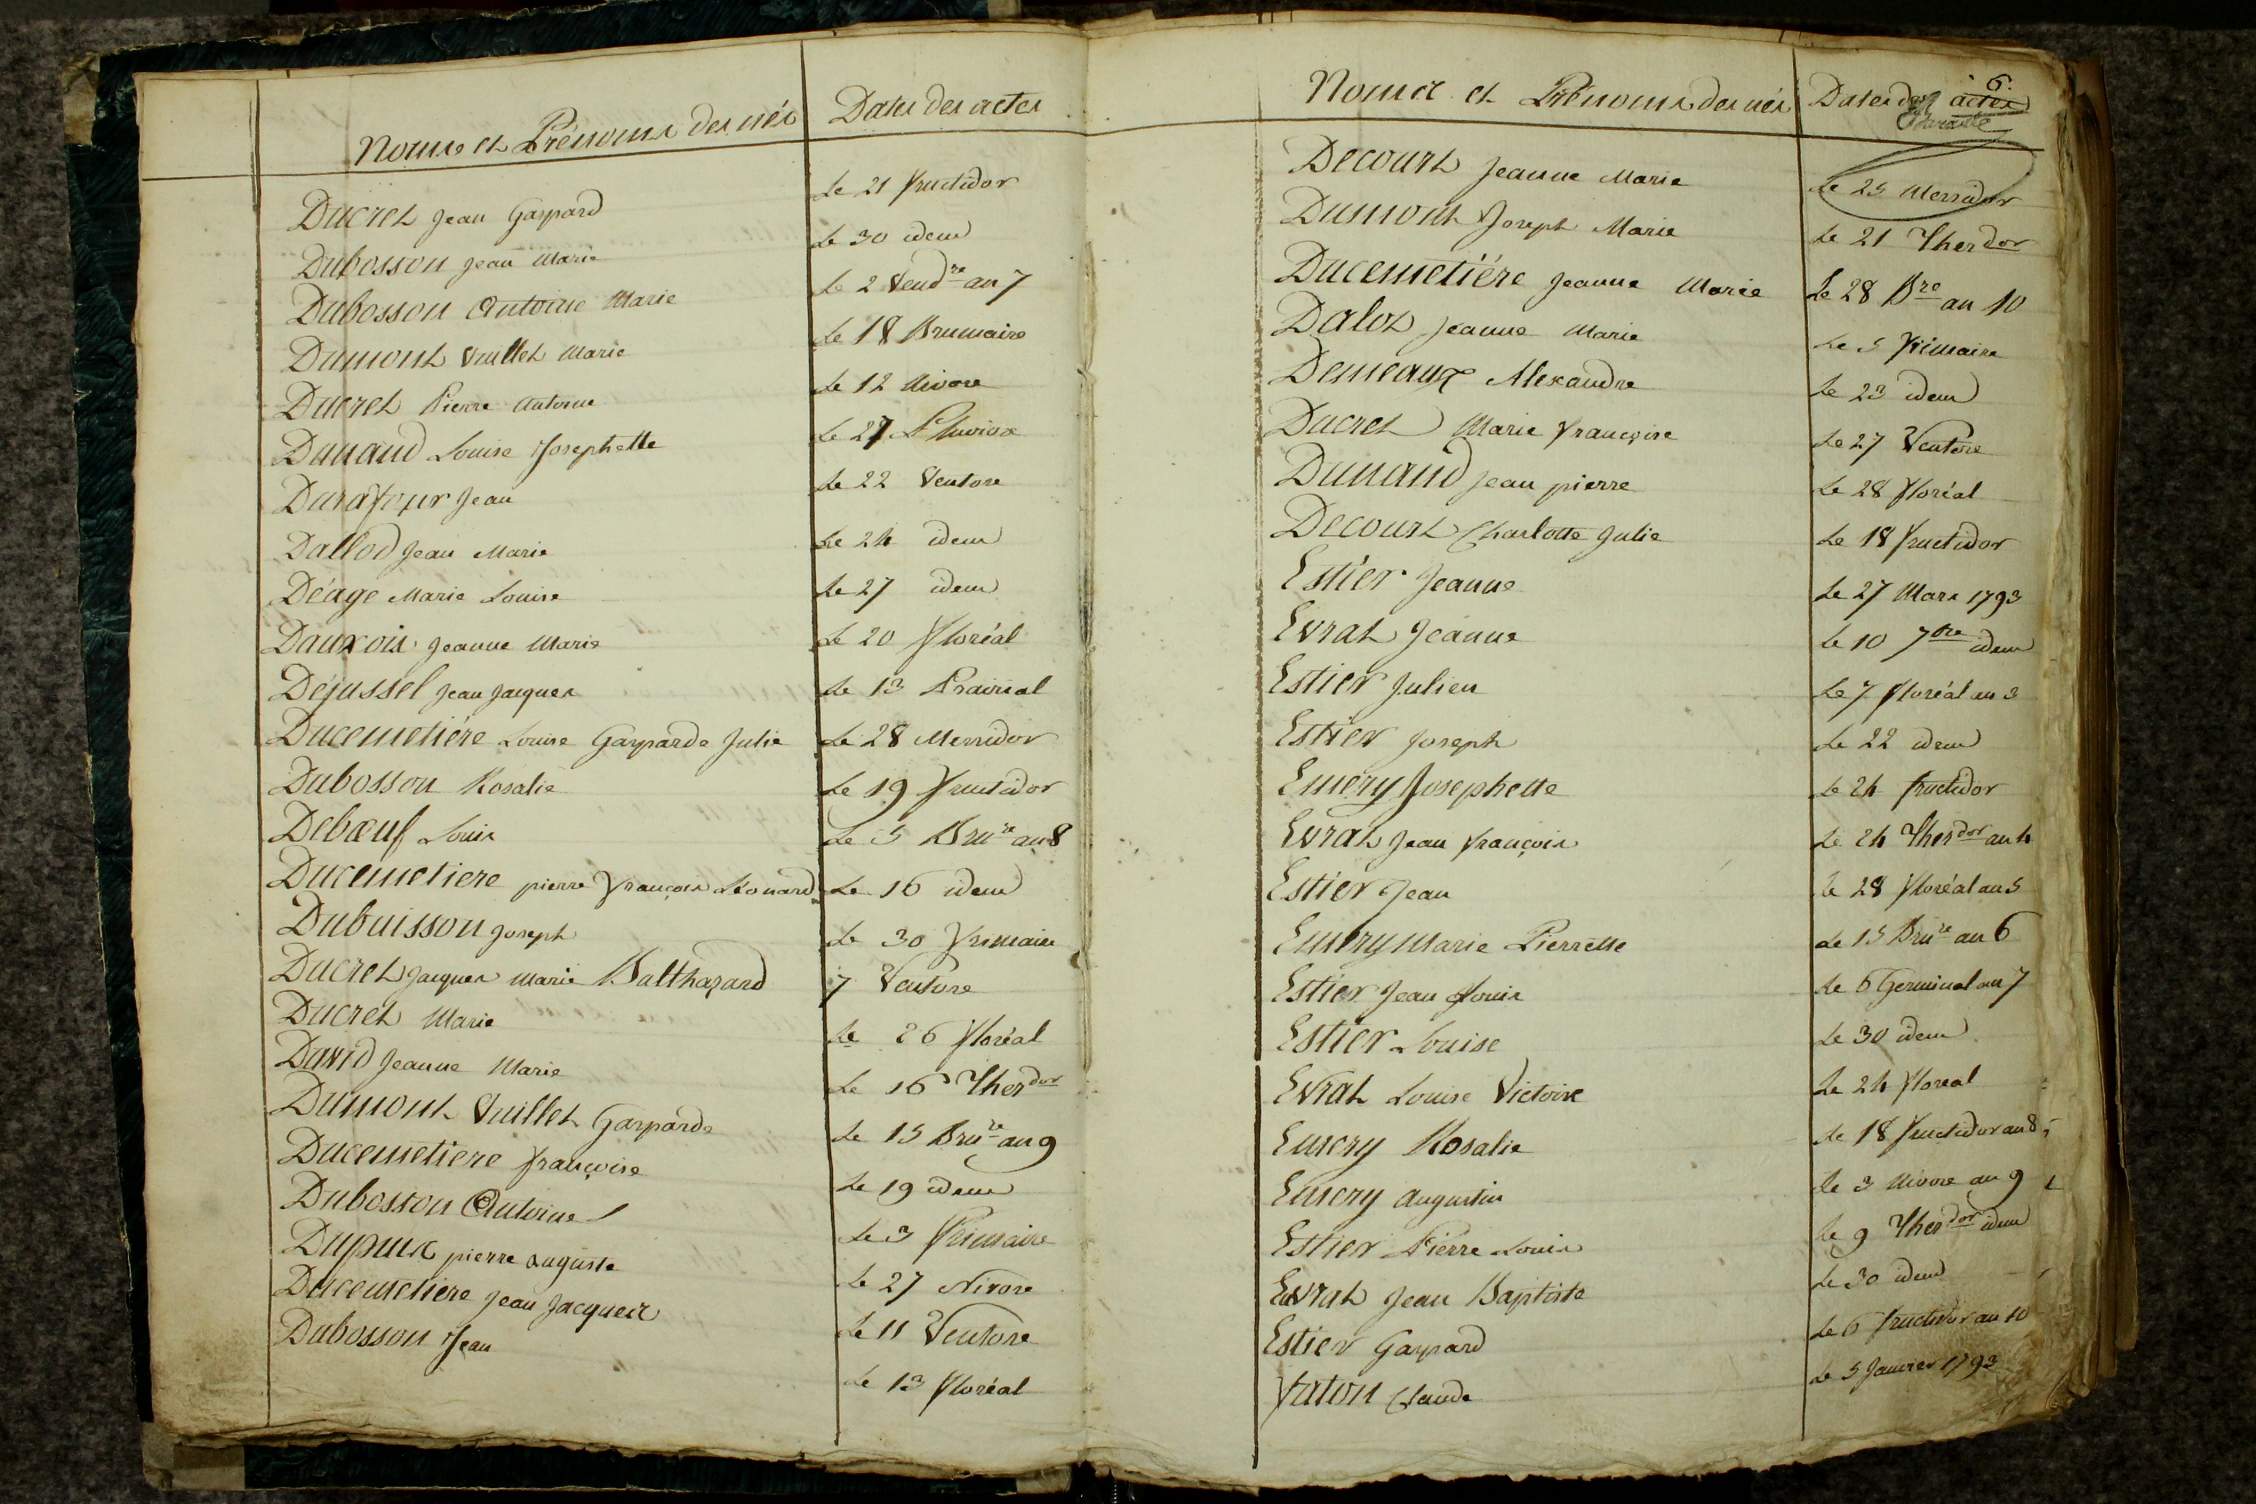 Noms et Prénoms des nés Dates des actes
Ducret Jean Gaspard Le 21 fructidor
Dubosson Jean Marie Le 30 idem
Dubosson Antoine Marie Le 2 Vendre an 7
Dumont Vuillet Marie Le 18 Brumaire
Ducret Pierre Antoine Le 12 Nivose
Dunand Louise Josephette Le 27 Pluviose
Durafour Jean Le 22 Ventose
Dallod Jean Marie Le 24 idem
Déage Marie Louise Le 27 idem
Dauxois Jeanne Marie Le 20 floréal
Dejussel Jean Jacques Le 13 Prairial
Ducemetiére Louise Gasparde Julie Le 28 Messidor
Dubosson Rosalie Le 19 fructidor
Debœuf Louis Le 5 Brure an 8
Ducemetiere pierre françois Léonard Le 16 idem
Dubuisson Joseph Le 30 frimaire
Ducret Jacques Marie Balthazard 7 Ventose
Ducret Marie Le 26 floréal
David Jeanne Marie Le 16 Therdor
Dumont Vuillet Gasparde Le 15 Brure an 9
Ducemetiere françoise Le 19 idem
Dubosson Antoine Le 3 frimaire
Dupuix pierre auguste Le 27 Nivose
Ducemetiere Jean Jacques Le 11 Ventose
Dubosson Jean Le 13 floréal
6.
Noms et Prénoms des nés Dates des actes
Decourt Jeanne Marie Le 25 Messidor
Dumont Joseph Marie Le 21 Therdor
Ducemetiére Jeanne Marie Le 28 Bre an 10
Daloz Jeanne Marie Le 5 frimaire
Demeaux Alexandre Le 23 idem
Ducret Marie françoise Le 27 Ventose
Dunand Jean pierre Le 28 floréal
Decourt Charlotte Julie Le 18 fructidor
Estier Jeanne Le 27 Mars 1793
Evrat Jeanne Le 10 7bre idem
Estier Julien Le 7 floréal an 3
Estier Joseph Le 22 idem
Emery Josephette Le 24 fructidor
Evrat Jean françois Le 24 Therdor an 4
Estier Jean Le 28 floréal an 5
Emery Marie Pierrette Le 15 Brure an 6
Estier Jean Louis Le 6 Germinal an 7
Estier Louise Le 30 idem
Evrat Louise Victoire Le 24 floreal
Emery Rosalie Le 18 fructidor an 8
Emery Augustin Le 3 Nivose an 9
Estier Pierre Louis Le 9 Therdor idem
Evrat Jean Baptiste Le 30 idem
Estier Gaspard Le 6 fructidor an 10
faton Claude Le 5 Janvier 1793